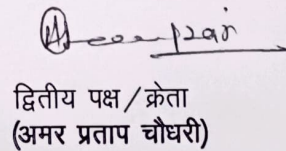 द्वितीय पक्ष/क्रेता
(अमर प्रताप चौधरी)